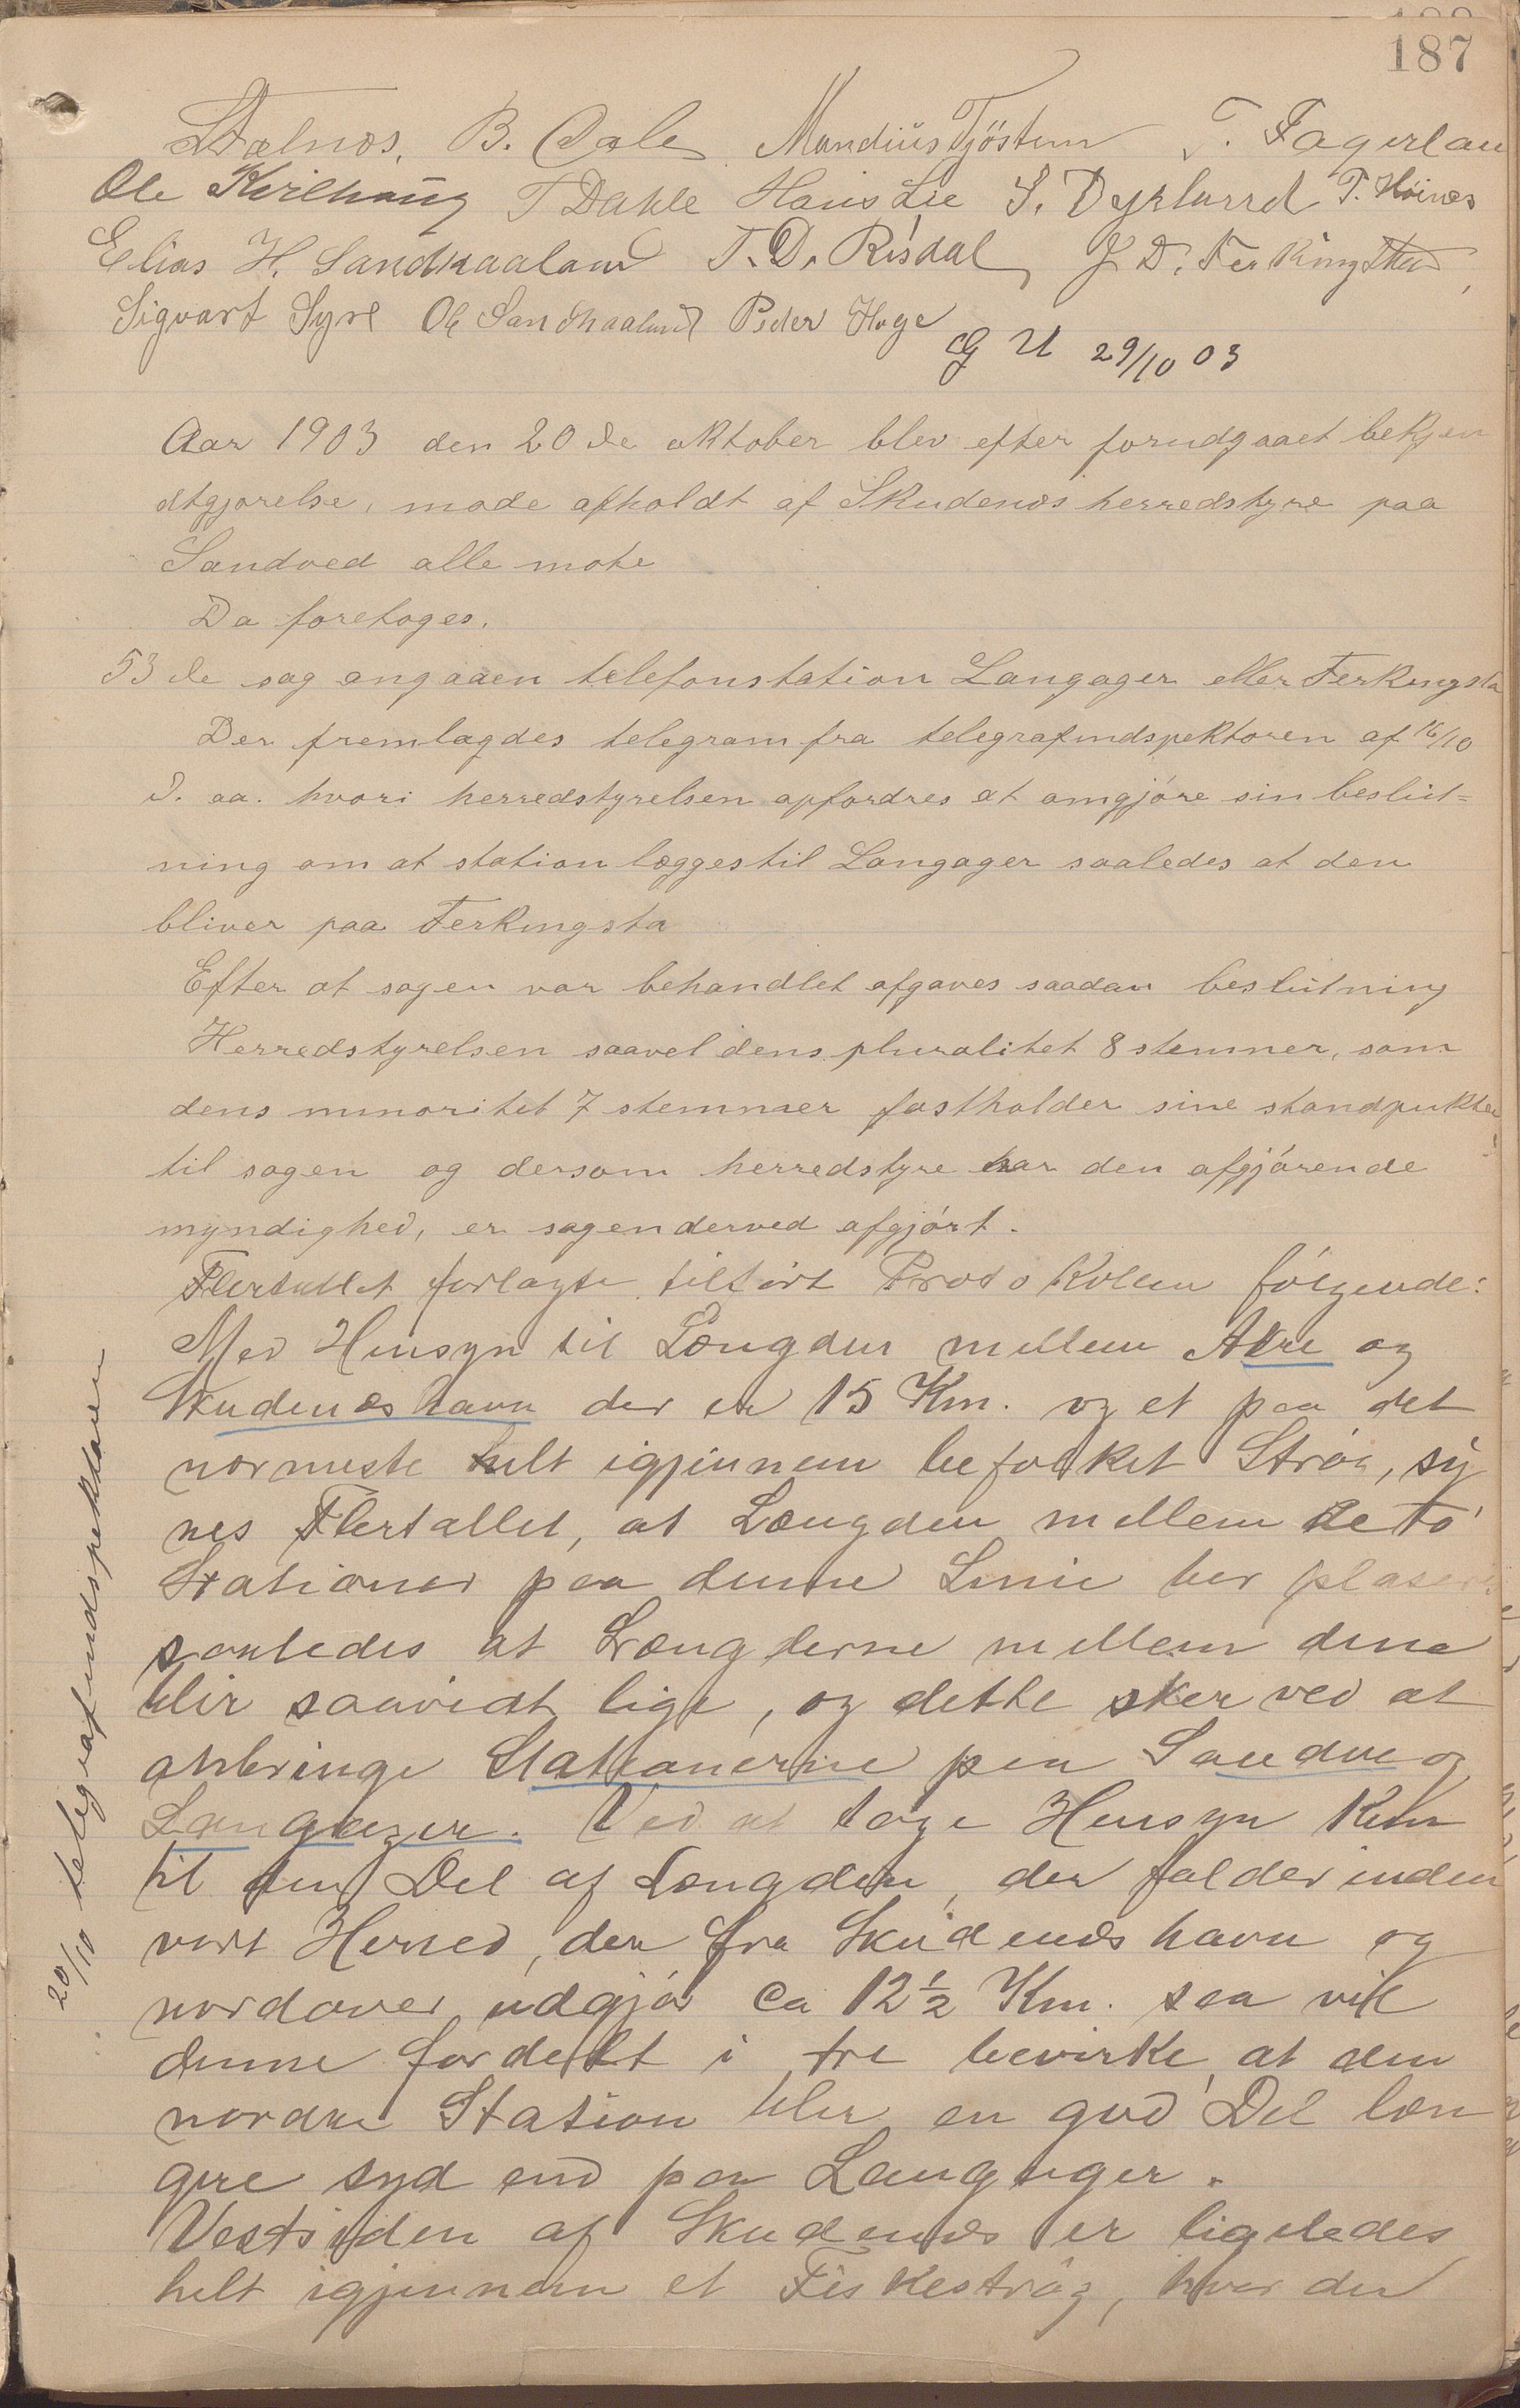 187
Stølnæs. B. Dale Mandius Tjøstem T. Fagerlan
Ole Kvilhaug T Dahle Hans Lie S. Dyrlund T. Høines
Elias H. Sandhaaland T. D. Risdal J D. Ferkingstad
Sigvart Syre Ol Sandhaaland Peder Hoge
G U 29/10 03
Aar 1903 den 20de oktober blev efter forudgaaet bekjen
dtgjørelse, møde afholdt af Skudenæs herredstyre paa
Sandved alle møte
Da foretoges.
53de sag angaaen telefonstation Langager eller Ferkingsta
Der fremlagdes telegram fra telegrafindspektøren af 16/10
d. aa. hvori herredstyrelsen opfordres at omgjøre sin beslut=
ning om at station lægges til Langager saaledes at den
bliver paa Ferkingsta
Efter at sagen var behandlet afgaves saadan beslutning
Herredstyrelsen saavel dens pluralitet 8 stemner, som
dens minoritet 7 stemmer fastholder sine standpukter
til sagen og dersom herredstyre har den afgjørende
myndighed, er sagen derved afgjørt.
Flertallet forlagte tilført Protokolen følgende:
Med Hensyn til Længden mellem Akre og
Skudenæshavn der er 15 Km. og et paa det
nærmeste helt igjennem befolket Strøg, sy
nes Flertallet, at Længden mellem de to
Stationer paa denne Linie bør plasere
saaledes at Længderne mellem dene
blir saavidt lige, og dette sker ved at
anbringe Stationerne paa Sandve og
Langager. Ved at tage Hensyn kun
til den Del af Længden, der falder inden
vort Herred, der fra Skudenæshavn og
nordover udgjør Ca 12½ Km. saa vil
denne fordelt i tre bevirke, at den
nordre Station bler en god Del læn
gere syd end paa Langager.
Vestsiden af Skudenæs er ligeledes
helt igjennem et Fiskestrøg, hvor der
20/10 telegrafindspektøren